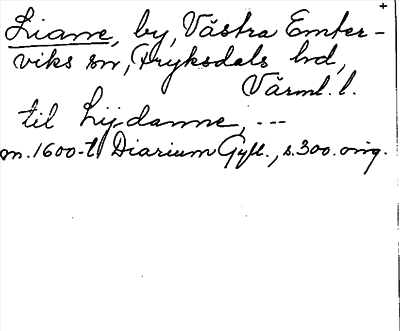 +
Liane, by, Västra Emter-
viks sn, Fryksdals hd,
Värml. l.
til Lijdanne, ---
m. 1600-t. Diarium Gyll., s. 300. orig.